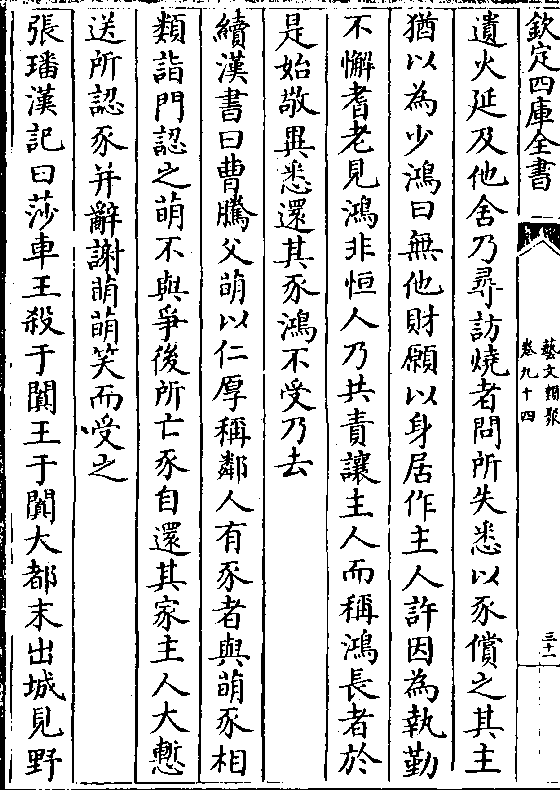 欽定四庫全書
藝文類聚
卷九十四
三十一
遺火延及他舍乃尋訪燒者問所失悉以豕償之其主
猶以為少鴻曰無他財願以身居作主人許因為執勤
不懈耆老見鴻非恒人乃共責讓主人而稱鴻長者於
是始敬異悉還其豕鴻不受乃去
續漢書曰曹騰父萌以仁厚稱鄰人有豕者與萌豕相
類詣門認之萌不與爭後所亡豕自還其家主人大慙
送所認豕并辭謝萌萌笑而受之
張璠漢記曰莎車王殺于闐王于闐大都末出城見野